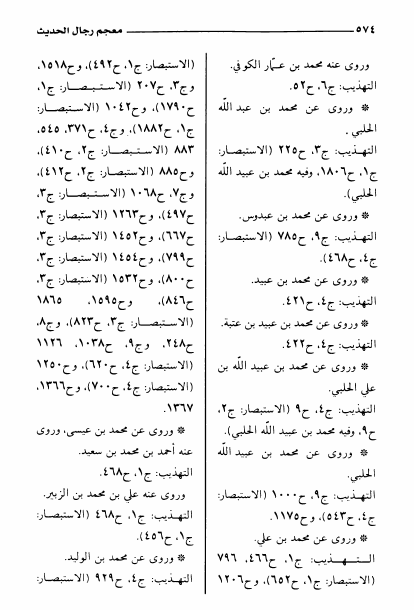 ٥٧٤ معجم رجال الحديث
وروى عنه محمد بن عمّار الكوفي.
التهذيب: ج٦، ح٥٢.
* وروى عن محمد بن عبد اللّه
الحلبي.
التهذيب: ج٣، ح٢٢٥ (الاستبصار:
ج١، ح١٨٠٦، وفيه محمد بن عبيد اللّه
الحلبي).
* وروى عن محمد بن عبدوس.
التهذيب: ج٩، ح٧٨٥ (الاستبصار:
ج٤، ح٤٦٨).
* وروى عن محمد بن عبيد.
التهذيب: ج٤، ح٤٢١.
* وروى عن محمد بن عبيد بن عتبة.
التهذيب: ج٤، ح٤٢٢.
* وروى عن محمد بن عبيد اللّه بن
علي الحلبي.
التهذيب: ج٤، ح٩ (الاستبصار: ج٢،
ح٩، وفيه محمد بن عبيد اللّه الحلبي).
* وروى عن محمد بن عبيد اللّه
الحلبي.
التهذيب: ج٩، ح١٠٠٠ (الاستبصار:
ج٤، ح٥٤٣)، وح١١٧٥.
* وروى عن محمد بن علي.
التـهـذيب: ج١، ح٤٦٦، ٧٩٦
(الاستبصار: ج١، ح٦٥٢)، وح١٢٠٦
(الاستبصار: ج١، ح٤٩٢)، وح١٥١٨،
وج٣، ح٢٠٧ (الاستـبـصـار: ج١،
ح١٧٩٠)، وح١٠٤٢ (الاستبصار:
ج١، ح١٨٨٢)، وج٤، ح٣٧١، ٥٤٥،
٨٨٣ (الاستبصار: ج٢، ح٤١٠)،
وح٨٨٥ (الاستبصار: ج٢، ح٤١٢)،
وج٧، ح١٠٦٨ (الاستبصار: ج٣،
ح٤٩٧)، وح١٢٦٣ (الاستبصار: ج٣،
ح٦٦٧)، وح١٤٥٢ (الاستبصار: ج٣،
ح٧٩٩)، وح١٤٥٤ (الاستبصار: ج٣،
ح٨٠٠)، وح١٥٣٢ (الاستبصار: ج٣،
ح٨٤٦)، وح١٥٩٥، ١٨٦٥
(الاستبصار: ج٣، ح٨٢٣)، وج٨،
ح٢٤٨، وج٩، ح١٠٣٨، ١١٢٦
(الاستبصار: ج٤، ح٦٢٠)، وح١٢٥٠
(الاستبصار: ج٤، ح٧٠٠)، وح١٣٦٦،
١٣٦٧.
* وروى عن محمد بن عيسى، وروى
عنه أحمد بن محمد بن سعيد.
التهذيب: ج١، ح٤٦٨.
وروى عنه علي بن محمد بن الزبير.
التهذيب: ج١، ح٤٦٨ (الاستبصار:
ج١، ح٤٥٦).
* وروى عن محمد بن الوليد.
التهذيب: ج٤، ح٩٢٩ (الاستبصار: